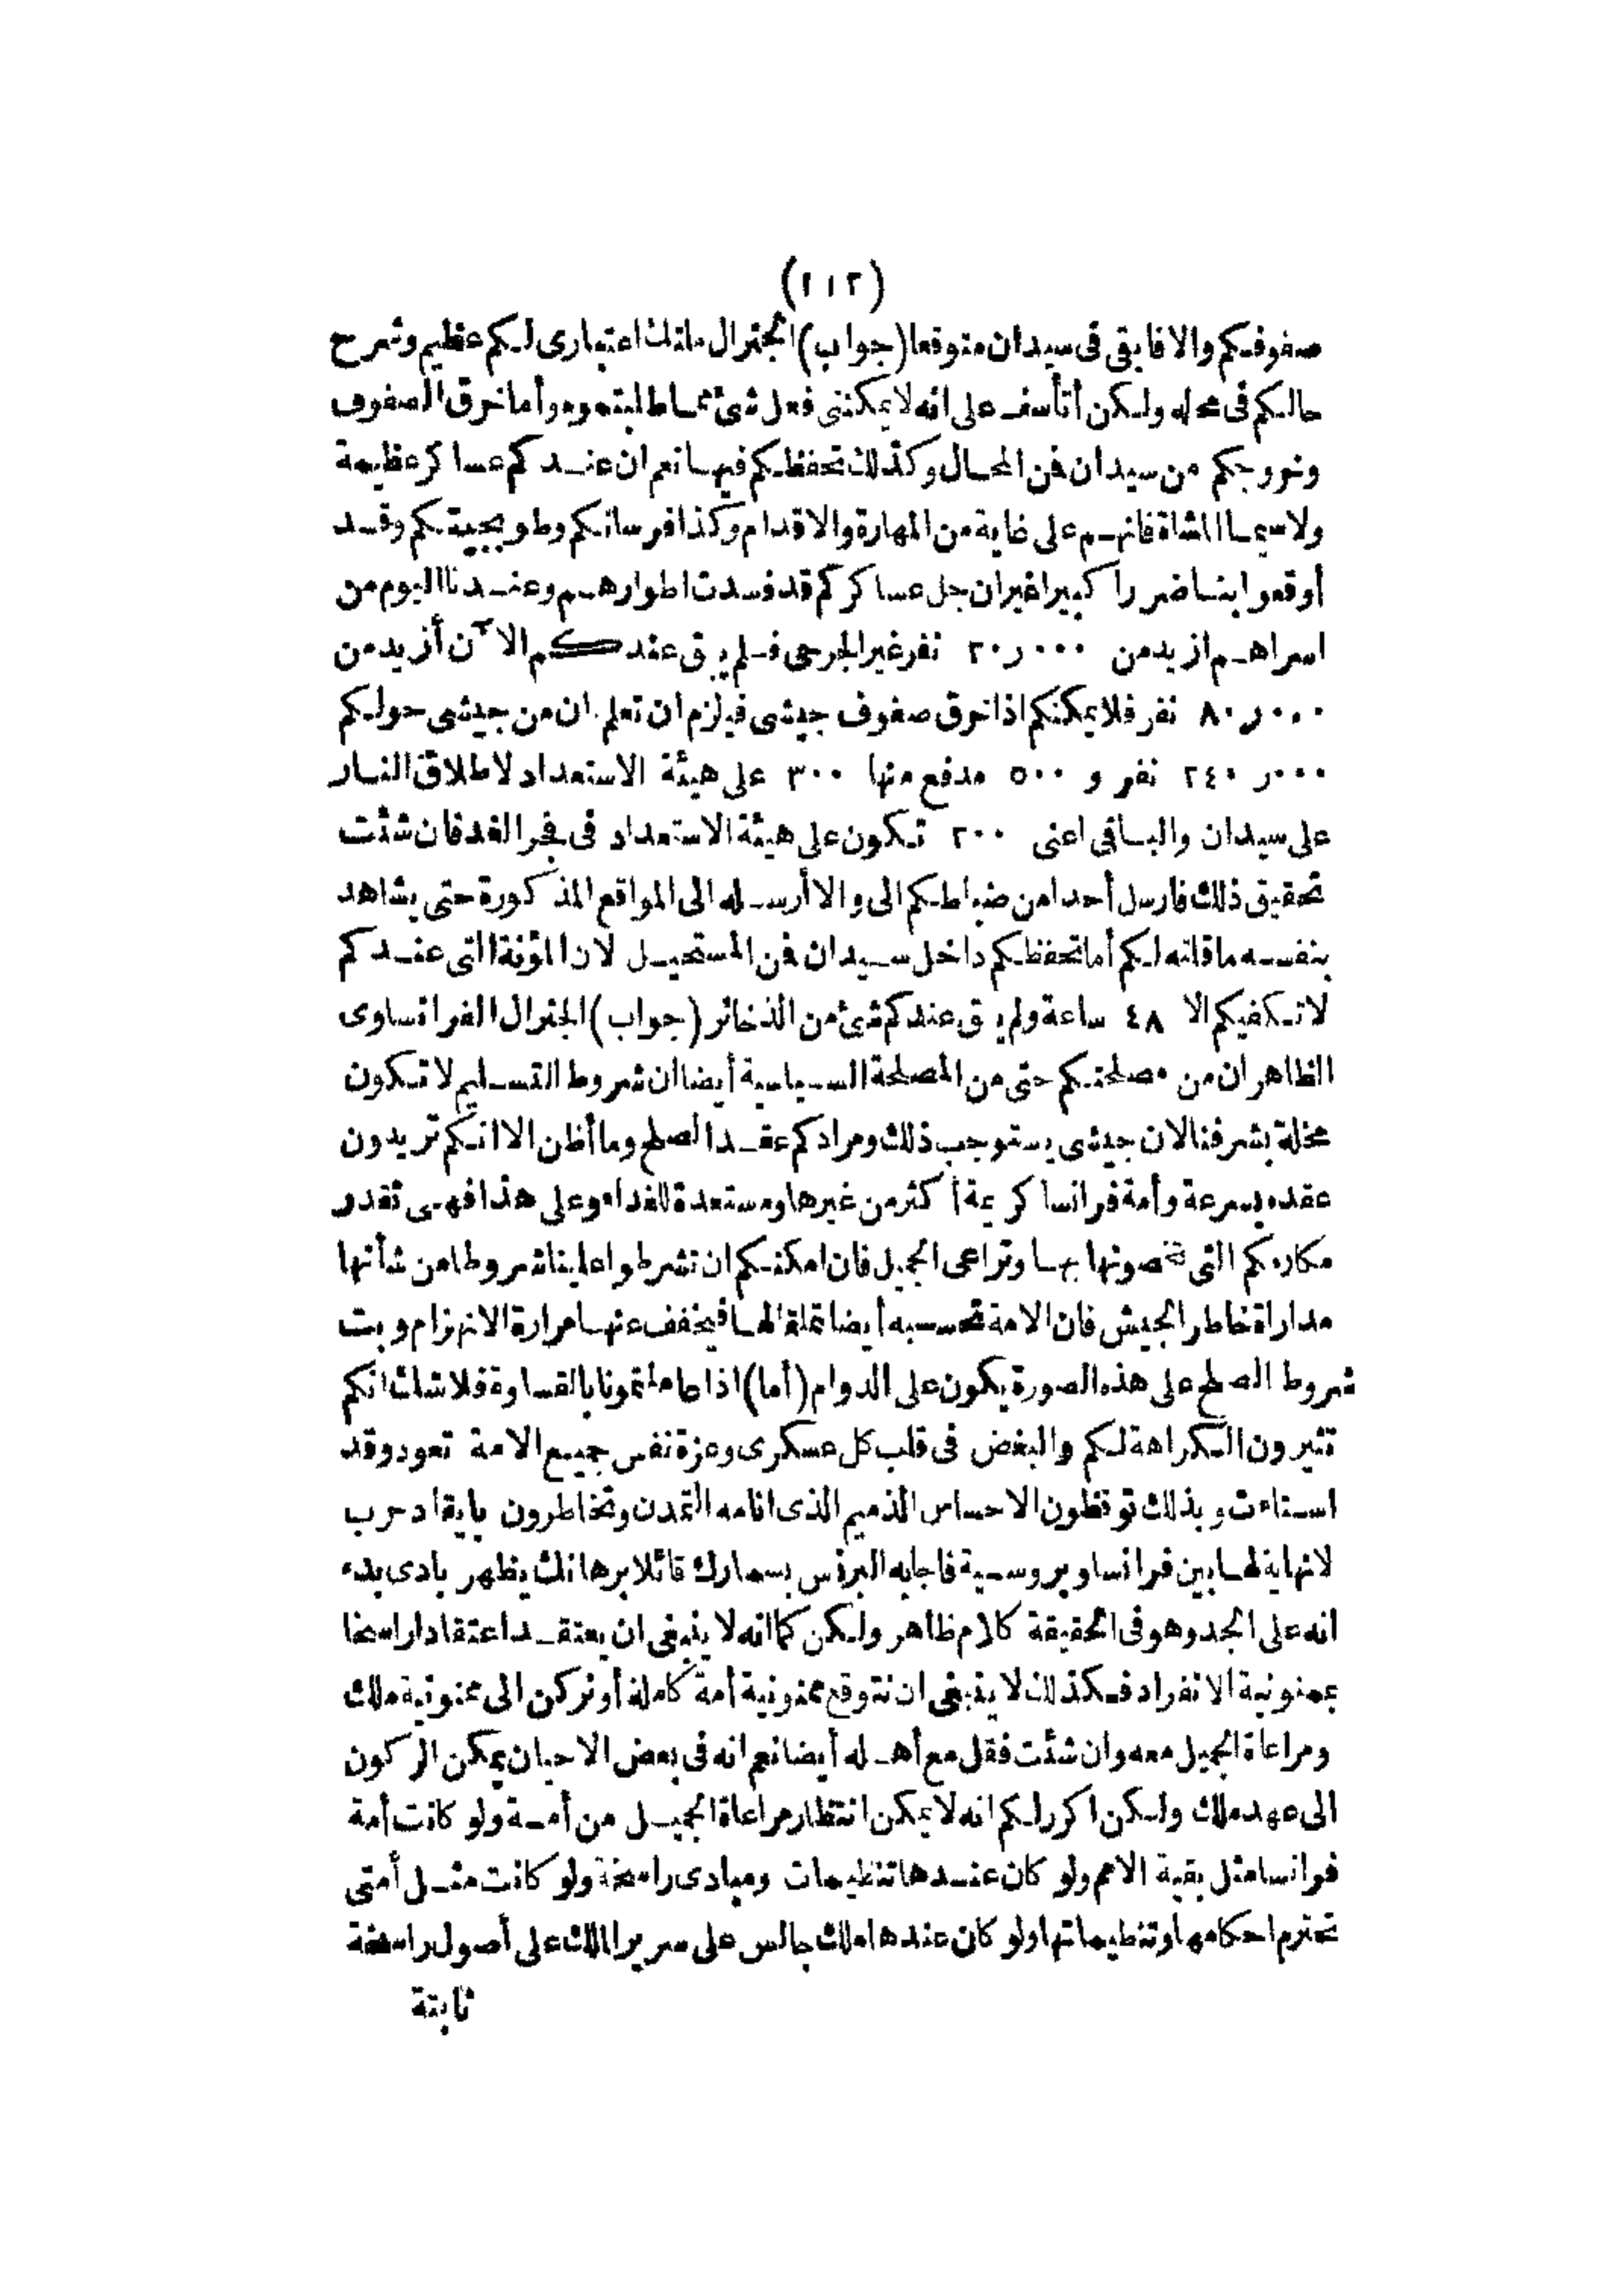 (١١٢)
صفوفكم والا فابقى فى سيدان متوقعا (جواب) الجنرال ملتك اعتبارى لكم عظيم وشرح
حالكم فى محله ولكن أتأسف على انه لا يمكننى فعل شئ مما طلبتموه وأما خرق الصفوف
وخروجكم من سيدان فمن المحال وكذلك تحفظكم فيها نعم ان عندكم عساكر عظيمة
ولا سيما المشاة فانهم على غاية من المهارة والاقدام وكذا فرسانكم وطوبجيتكم وقد
أوقعوا بنا ضررا كبيرا غير ان جل عساكركم قد فسدت اطوارهم وعندنا اليوم من
اسراهم ازيد من ٢٠ر٠٠٠ نفر غير الجرحى فلم يبق عندكم الآن أزيد من
٨٠ر٠٠٠ نفر فلا يمكنكم اذا خرق صفوف جيشى فيلزم ان تعلم ان من جيشى حولكم
٢٤٠ر٠٠٠ نفر و ٥٠٠ مدفع منها ٣٠٠ على هيئة الاستعداد لاطلاق النار
على سيدان والباقى اعنى ٢٠٠ تكون على هيئة الاستعداد فى فجر الغد فان شئت
تحقيق ذلك فارسل أحدا من ضباطكم الى والا أرسله الى المواقع المذكورة حتى يشاهد
بنفسه ما قلته لكم أما تحفظكم داخل سيدان فمن المستحيل لان المؤنة التى عندكم
لا تكفيكم الا ٤٨ ساعة ولم يبق عندكم شئ من الذخائر (جواب) الجنرال الفرانساوى
الظاهر ان من مصلحتكم حتى من المصلحة السياسية أيضا ان شروط التسليم لا تكون
مخلة بشرفنا لان جيشى يستوجب ذلك ومرادكم عقد الصلح وما أظن الا انكم تريدون
عقده بسرعة وأمة فرانسا كريمة أكثر من غيرها ومستعدة للغداء وعلى هذا فهى تقدر
مكارمكم التى تخصونها بها وتراعى الجميل فان امكنكم ان تشرطوا علينا شروطا من شأنها
مداراة خاطر الجيش فان الامة تحسبه أيضا تملقا لها فيخفف عنها مرارة الانهزام وبت
شروط الصلح على هذه الصورة يكون على الدوام (أما) اذا عاملتمونا بالقساوة فلا شك انكم
تثيرون الكراهة لكم والبغض فى قلب كل عسكرى وعزة نفس جميع الامة تعود وقد
استاءت وبذلك توقظون الاحساس الذميم الذى انامه التمدن وتخاطرون بايقاد حرب
لا نهاية لها بين فرانسا وبروسية فاجابه البرنس بسمارك قائلا برهانك يظهر بادى بدء
انه على الجد وهو فى الحقيقة كلام ظاهر ولكن كما انه لا ينبغى ان يعتقد اعتقادا راسخا
بممنونية الانفراد فكذلك لا ينبغى ان نتوقع ممنونية أمة كاملة أو نركن الى ممنونية ملك
ومراعاة الجميل معه وان شئت فقل مع أهله أيضا نعم انه فى بعض الاحيان يمكن الركون
الى عهد ملك ولكن اكرر لكم انه لا يمكن انتظار مراعاة الجميل من أمة ولو كانت أمة
فرانسا مثل بقية الامم ولو كان عندها تنظيمات ومبادى راسخة ولو كانت مثل أمتى
تحترم احكامها وتنظيماتها ولو كان عندها ملك جالس على سرير الملك على أصول راسخة
ثابتة